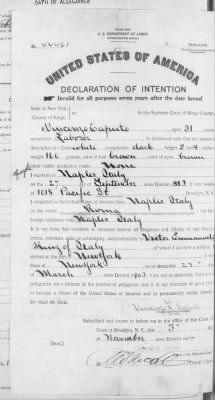 OATH OF ALLEGIANCE
U. S. DEPARTMENT OF LABOR
No. 44461
UNITED STATES OF AMERICA
DECLARATION OF INTENTION
Invalid for all purposes seven years after the date hereof
State of New York,
County of Kings,
In the Supreme Court of Kings County.
I, Vincenzo Caputo, aged 31 years,
occupation Laborer, do declare on oath that my personal
description is: Color white, complexion dark, height 5 feet
weight 160 pounds, color of hair brown, color of eyes brown
other visible distinctive marks None
I was born in Naples Italy
on the 27 day of September, anno Domini 1883; I now reside
at 1018 Pacific St
I emigrated to the United States of America from Naples Italy
on the vessel Roma; my last
foreign residence was Naples, Italy
It is my bona fide intention to renounce forever all allegiance and fidelity to any foreign
prince, potentate, state, or sovereignty, and particularly to Victor Emmanuel
King of Italy, of whom I am now a subject;
I arrived at the port of New York, in the
State of New York, on or about the day
of March, anno Domini 1903; I am not an anarchist; I am not a
polygamist nor a believer in the practice of polygamy; and it is my intention in good faith
to become a citizen of the United States of America and to permanently reside therein:
SO HELP ME GOD.
Vincenzo Caputo
Subscribed and sworn to before me in the office of the Clerk of
Court at Brooklyn, N. Y., this 3 day
of November, anno Domini
[SEAL.]